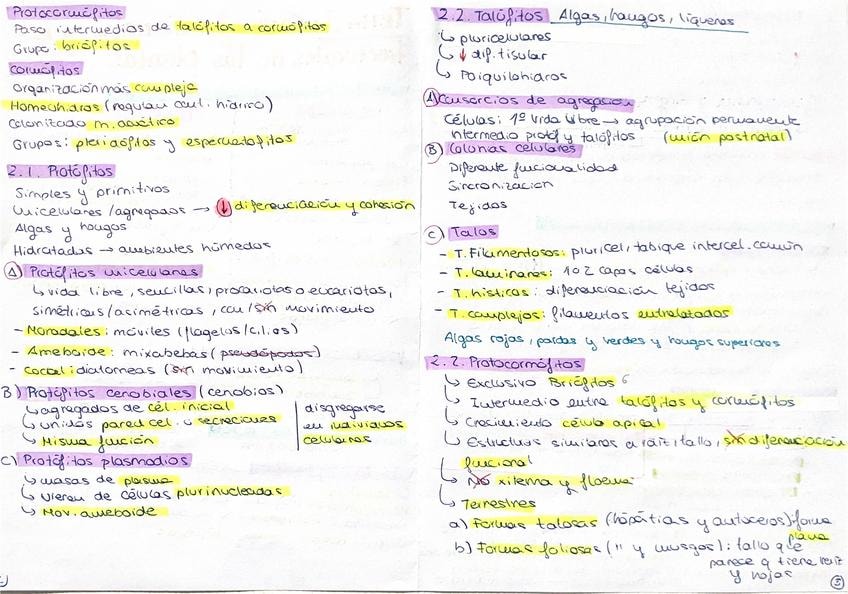 Protocormófitos
Paso intermedios de talófitos a cormófitos
Grupo: briófitos
Cormófitos
Organización más compleja
Homeohidros (regulan cont. hídrico)
Colonizado m. acuático
Grupos: pteridófitos y espermatófitos
2.1. Protófitos
Simples y primitivos
Unicelulares/agregados → ↓ diferenciación y cohesión
Algas y hongos
Hidratados → ambientes húmedos
A) Protófitos unicelulares
↳ vida libre, sencillas, procariotas o eucariotas,
simétricas/asimétricas, con/sin movimiento
- Monadales: móviles (flagelos/cilios)
- Ameboide: mixabebas (pseudópodos)
- Cocal: diatomeas (sin movimiento)
B) Protófitos cenobiales (cenobios)
↳ agregados de cél. inicial
↳ unidos pared cel. o secreciones
↳ Misma función
disgregarse
en individuos
celulares
C) Protófitos plasmodios
↳ masas de plasma
↳ Vienen de células plurinucleadas
↳ Mov. ameboide
2.2. Talófitos Algas, hongos, líquenes
↳ pluricelulares
↳ ↓ dif. tisular
↳ Poiquilohidros
A) Consorcios de agregación
Células: 1º vida libre → agrupación permanente
Intermedio protóf y talófitos (unión postnatal)
B) Colonias celulares
Diferente funcionalidad
Sincronización
Tejidos
C) Talos
- T. Filamentosos: pluricel, tabique intercel. común
- T. laminares: 1 o 2 capas células
- T. hísticos: diferenciación tejidos
- T. complejos: filamentos entrelazados
Algas rojas, pardas y verdes y hongos superiores
2.2. Protocormófitos
↳ Exclusivo Briófitos
↳ Intermedio entre talófitos y cormófitos
↳ Crecimiento célula apical
↳ Estructuras similares a raíz, tallo, sin diferenciación
funcional
↳ No xilema y floema
↳ Terrestres
a) Formas talosas (hepáticas y antoceros): forma
plana
b) Formas foliosas (" y musgos): tallo que
parece q tiene raíz
y hojas
3